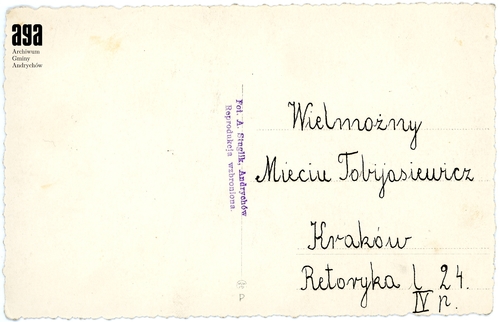 aga
Archiwum
Gminy
Andrychów
Fot. A. Stuglik, Andrychów
Reprodukcja wzbroniona.
Wielmożny
Mieciu Tobijasiewicz
Kraków
Retoryka l 24.
IV p.
P